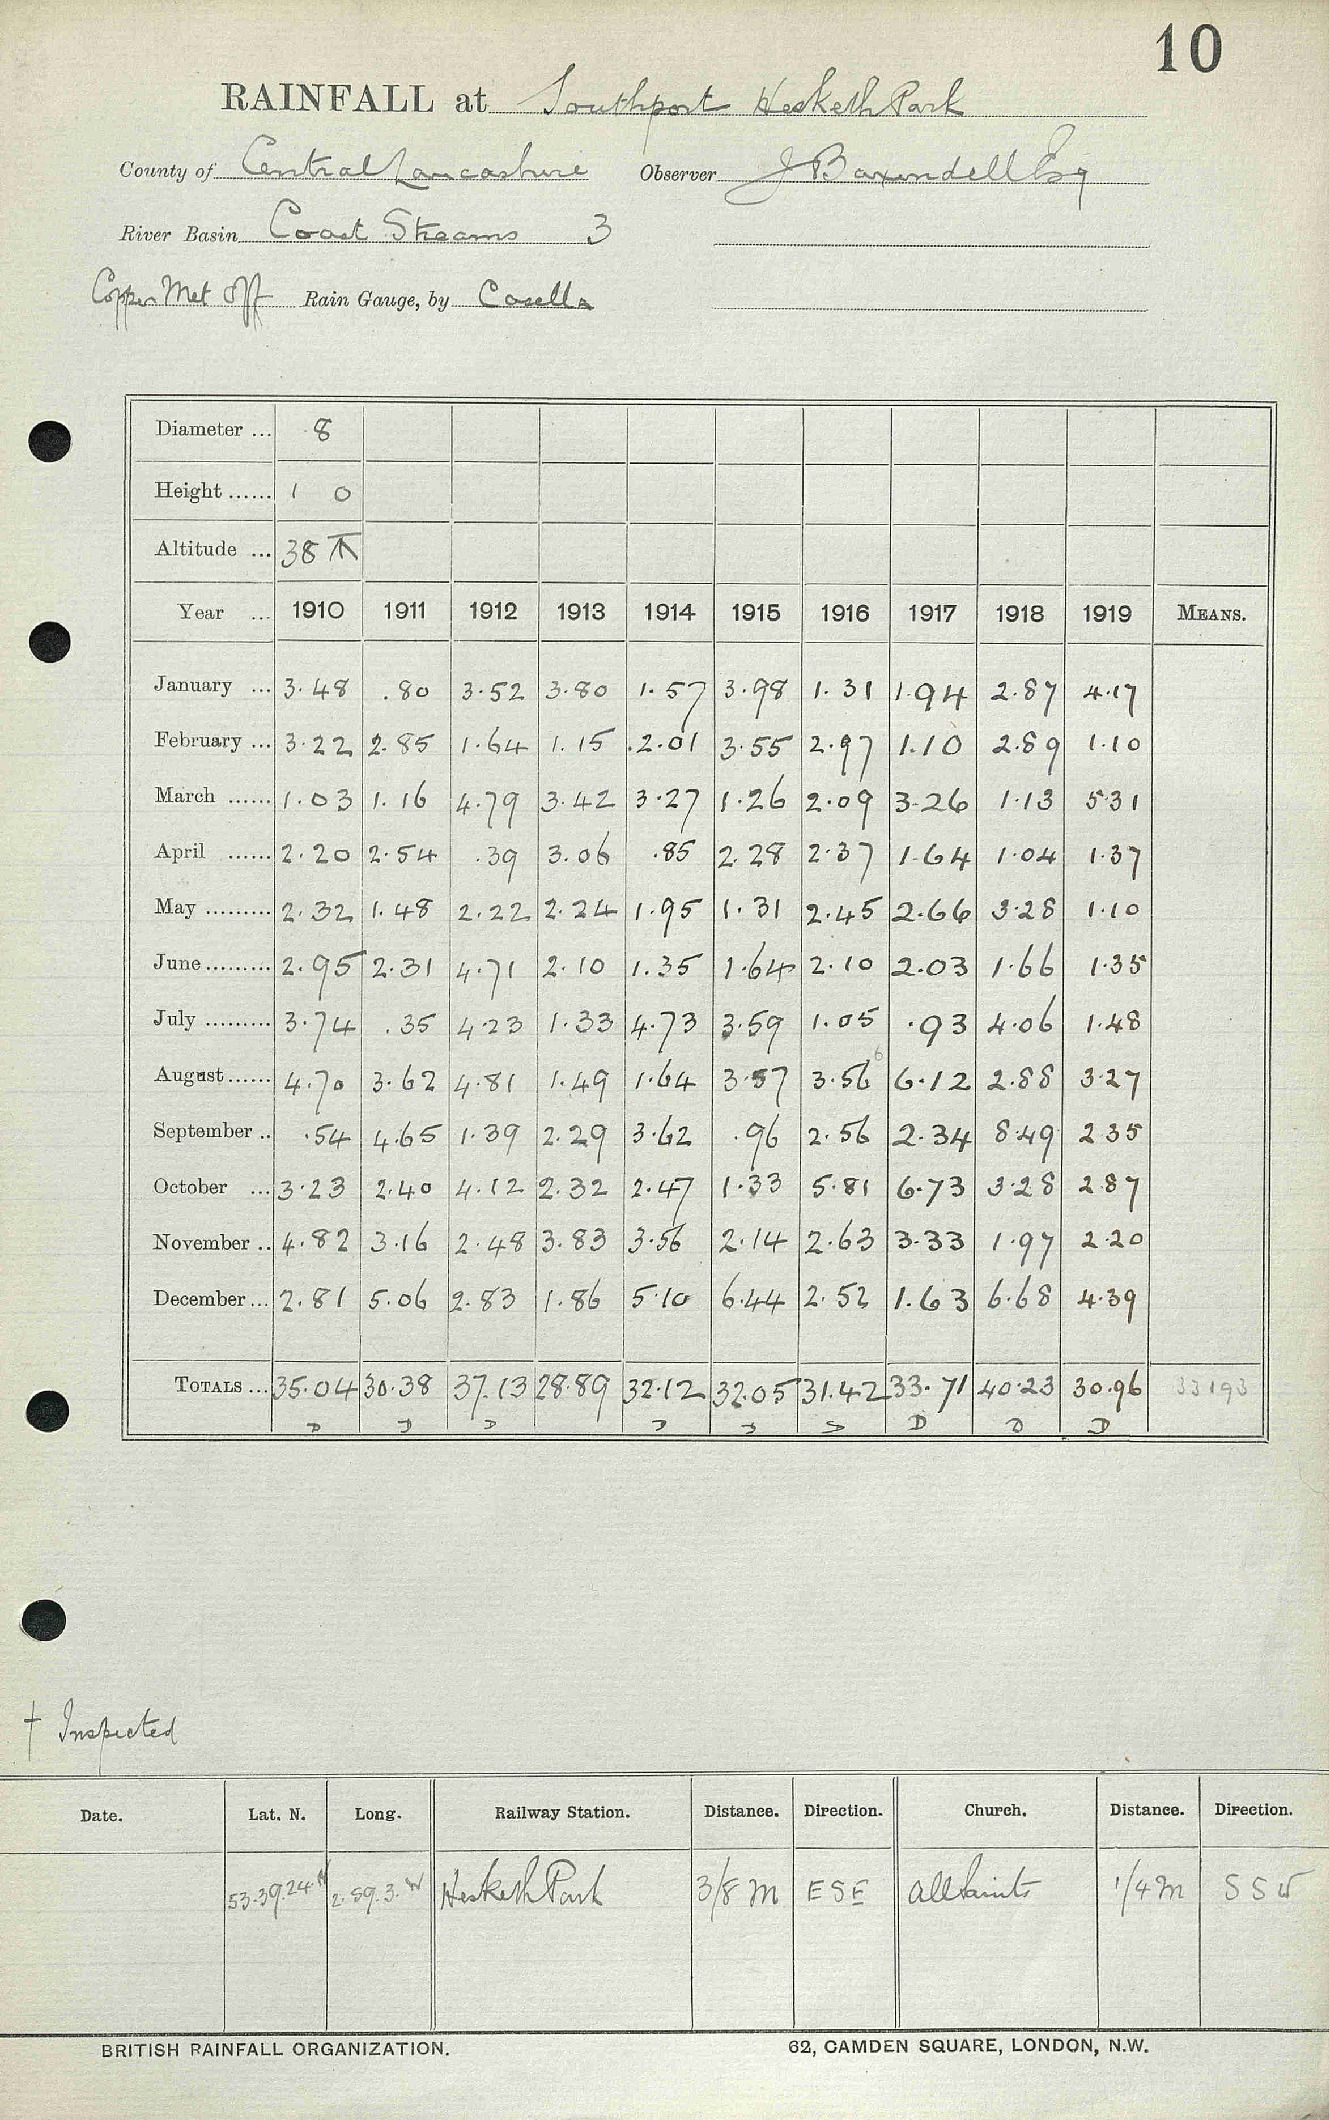 10
RAINFALL at Southport Hesketh Park
County of Central Lancashire Observer J Baxendell Esq
River Basin Coast Streams 3
Copper Met Off Rain Gauge, by Casella
Diameter ... 8
Height ...... 1 0
Altitude ... 38
Year ... 1910 1911 1912 1913 1914 1915 1916 1917 1918 1919 MEANS.
January ... 3.48 .80 3.52 3.80 1.57 3.98 1.31 1.94 2.87 4.17
February ... 3.22 2.85 1.64 1.15 2.01 3.55 2.97 1.10 2.89 1.10
March ...... 1.03 1.16 4.79 3.42 3.27 1.26 2.09 3.26 1.13 5.31
April ...... 2.20 2.54 .39 3.06 .85 2.28 2.37 1.64 1.04 1.37
May ......... 2.32 1.48 2.22 2.24 1.95 1.31 2.45 2.66 3.28 1.10
June ......... 2.95 2.31 4.71 2.10 1.35 1.64 2.10 2.03 1.66 1.35
July ......... 3.74 .35 4.23 1.33 4.73 3.59 1.05 .93 4.06 1.48
August ...... 4.70 3.62 4.81 1.49 1.64 3.57 3.56 6 6.12 2.88 3.27
September .. .54 4.65 1.39 2.29 3.62 .96 2.56 2.34 8.49 2.35
October ... 3.23 2.40 4.12 2.32 2.47 1.33 5.81 6.73 3.28 2.87
November .. 4.82 3.16 2.48 3.83 3.56 2.14 2.63 3.33 1.97 2.20
December ... 2.81 5.06 2.83 1.86 5.10 6.44 2.52 1.63 6.68 4.39
TOTALS ... 35.04 30.38 37.13 28.89 32.12 32.05 31.42 33.71 40.23 30.96 33193
D D D D D D D D D
† Inspected
Date. Lat. N. Long. Railway Station. Distance. Direction. Church. Distance. Direction.
53.39.24 N 2.59.3. W Hesketh Park 3/8 m ESE All Saints 1/4 m SSW
BRITISH RAINFALL ORGANIZATION. 62, CAMDEN SQUARE, LONDON, N.W.